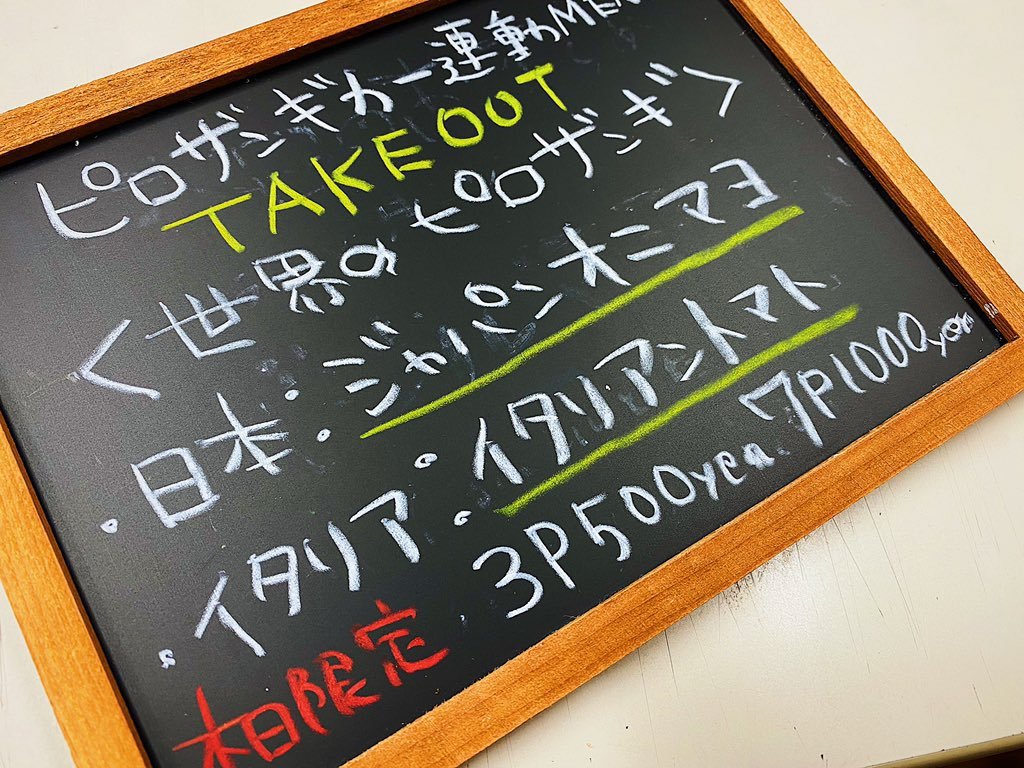 ピロザンギカー連動MEN
TAKE OUT
<世界のピロザンギ>
・日本：ジャパンオニマヨ
・イタリア：イタリアントマト
本日限定・3P500yen 7P1000yen